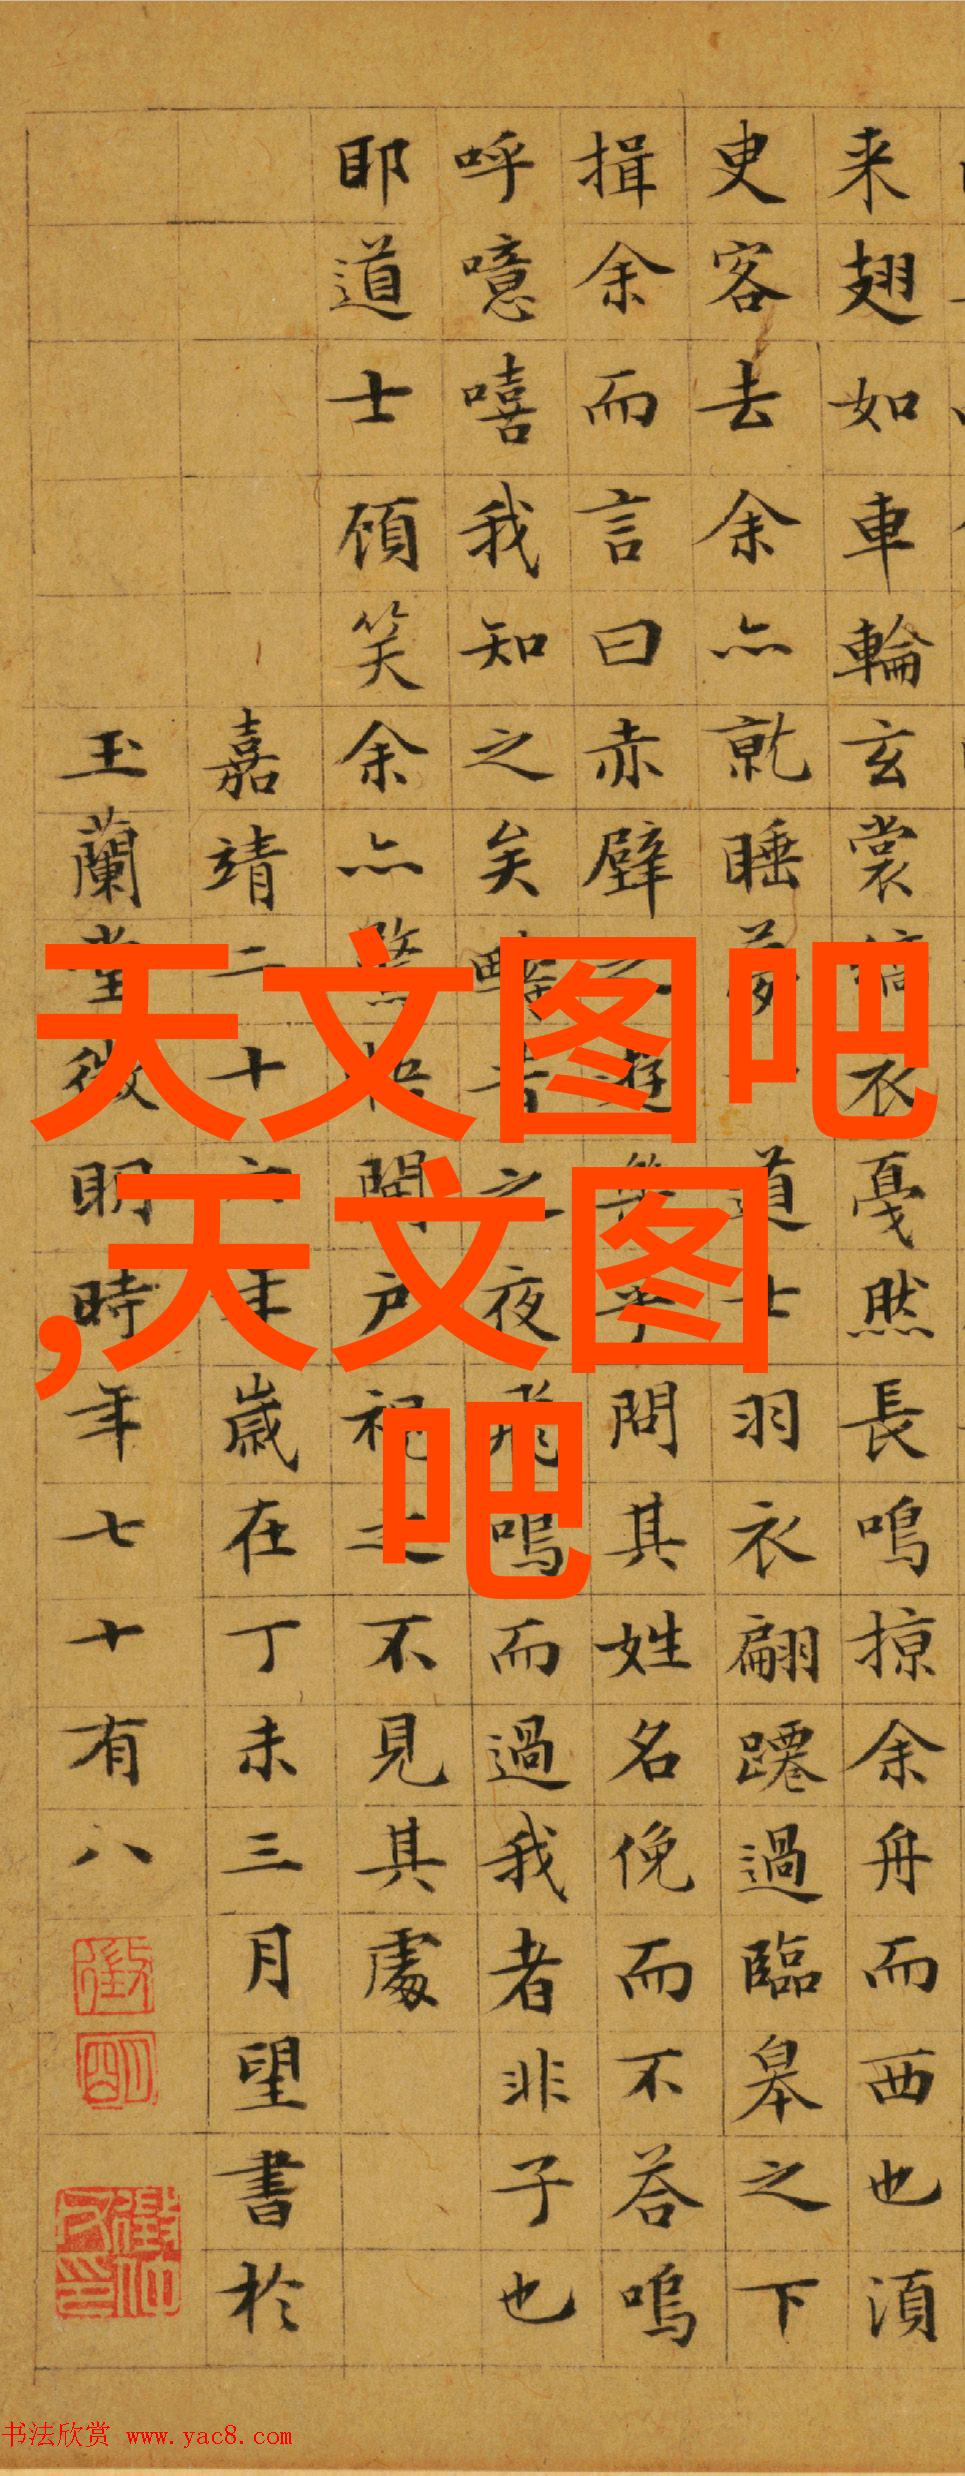 来翅如車輪玄裳縞衣戛然長鳴掠余舟而西也湏
臾客去余亦就睡夢道士羽衣翩躚過臨皋之下
揖余而言曰赤壁之遊樂乎問其姓名俛而不荅嗚
呼噫嘻我知之矣疇昔之夜飛鳴而過我者非子也
耶道士頋笑余亦驚悟開户視之不見其處
嘉靖二十六年歲在丁未三月望書於
玉蘭堂徵明時年七十有八
徵
明
天文图吧
,天文图
吧
书法欣赏 www.yac8.com